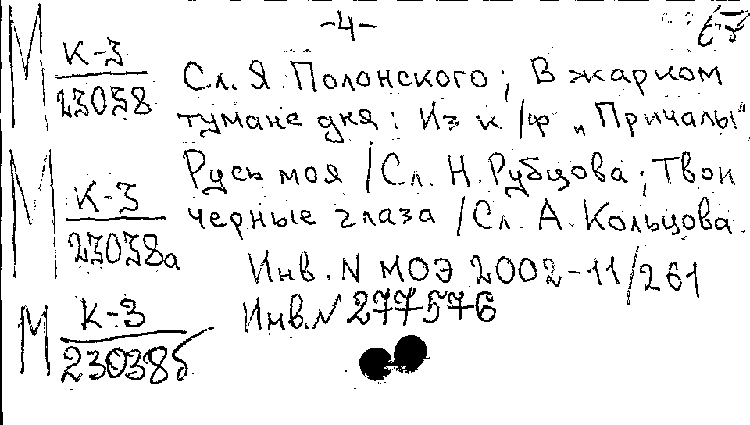 -4-
М К-3/23058
Сл. Я. Полонского; В жарком
тумане дня: Из к/ф „Причалы"
Русь моя /Сл. Н. Рубцова; Твои
М К-3/23038а
черные глаза /Сл. А. Кольцова.
Инв. N МОЭ 2002-11/261
М К-3/23038б
Инв. N 277576